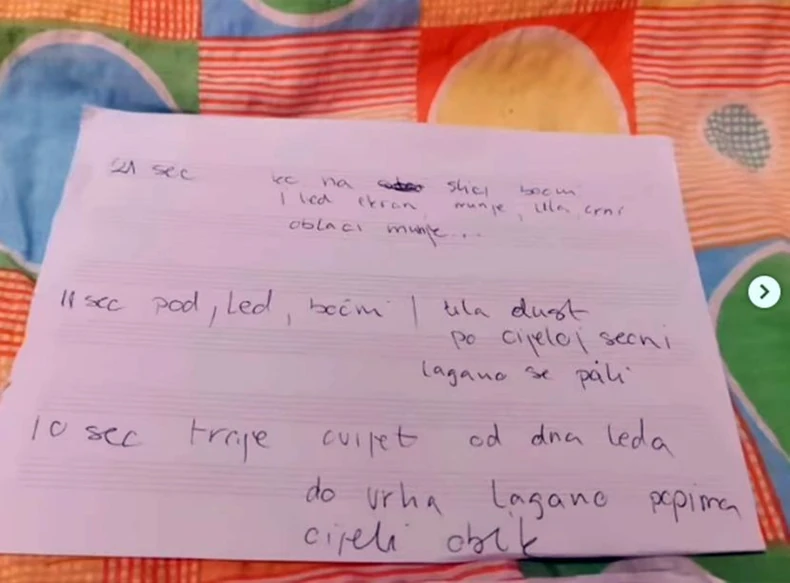 21 sec kc na slici bočni
i led ekran, munje, lila, crni
oblaci munje...
11 sec pod, led, bočni | lila dust
po cijeloj secni
lagano se pali
10 sec traje cvijet od dna leda
do vrha lagano popima
cijeli oblik